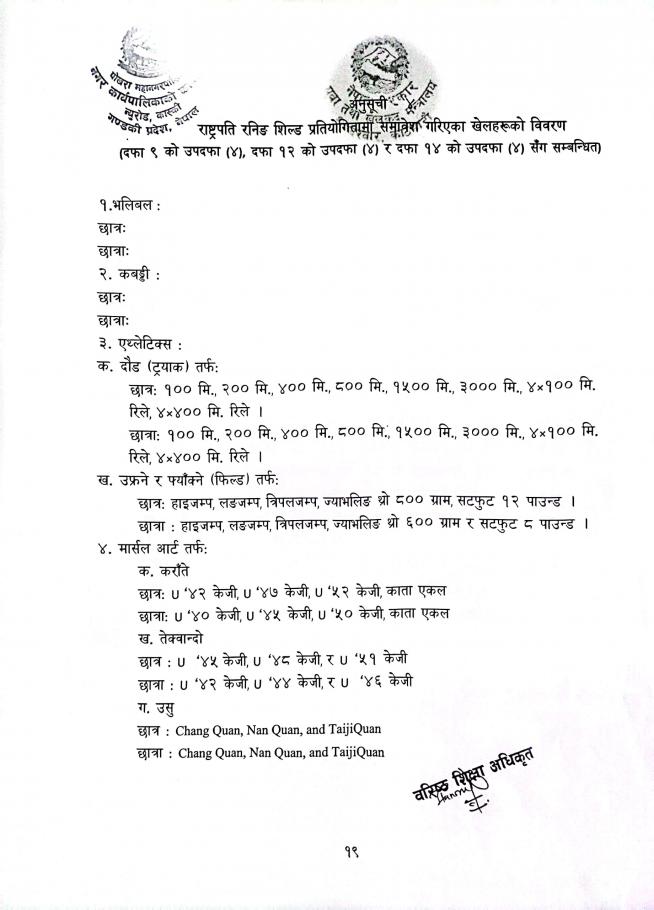 पोखरा महानगरपा
नगर कार्यपालिकाको
न्युरोड, कास्की
गण्डकी प्रदेश, नेपाल
अनुसूची
राष्ट्रपति रनिङ शिल्ड प्रतियोगितामा समावेश गरिएका खेलहरूको विवरण
(दफा ९ को उपदफा (४), दफा १२ को उपदफा (४) र दफा १४ को उपदफा (४) सँग सम्बन्धित)
१.भलिबल :
छात्रः
छात्राः
२. कबड्डी :
छात्रः
छात्राः
३. एथ्लेटिक्स :
क. दौड (ट्र्याक) तर्फ:
छात्र: १०० मि., २०० मि., ४०० मि., ८०० मि., १५०० मि., ३००० मि., ४×१०० मि.
रिले, ४×४०० मि. रिले ।
छात्रा: १०० मि., २०० मि., ४०० मि., ८०० मि., १५०० मि., ३००० मि., ४×१०० मि.
रिले, ४×४०० मि. रिले ।
ख. उफ्रने र फ्याँक्ने (फिल्ड) तर्फ:
छात्र: हाइजम्प, लङजम्प, त्रिपलजम्प, ज्याभलिङ थ्रो ८०० ग्राम, सटफुट १२ पाउन्ड ।
छात्रा : हाइजम्प, लङजम्प, त्रिपलजम्प, ज्याभलिङ थ्रो ६०० ग्राम र सटफुट ८ पाउन्ड ।
४. मार्सल आर्ट तर्फ:
क. कराँते
छात्र: U '४२ केजी, U '४७ केजी, U '५२ केजी, काता एकल
छात्रा: U '४० केजी, U '४५ केजी, U '५० केजी, काता एकल
ख. तेक्वान्दो
छात्र : U '४५ केजी, U '४८ केजी, र U '५१ केजी
छात्रा : U '४२ केजी, U '४४ केजी, र U '४६ केजी
ग. उसु
छात्र : Chang Quan, Nan Quan, and TaijiQuan
छात्रा : Chang Quan, Nan Quan, and TaijiQuan
वरिष्ठ शिक्षा अधिकृत
१९